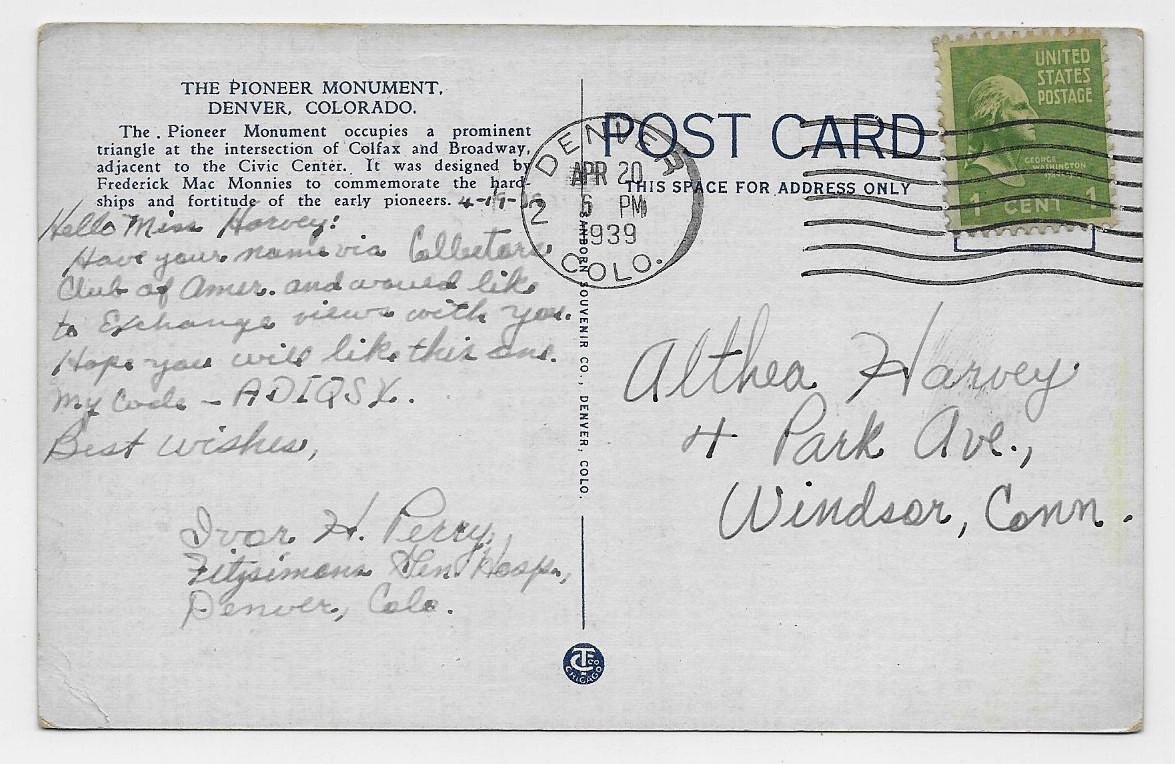 THE PIONEER MONUMENT,
DENVER, COLORADO.
The . Pioneer Monument occupies a prominent
triangle at the intersection of Colfax and Broadway,
adjacent to the Civic Center. It was designed by
Frederick Mac Monnies to commemorate the hard-
ships and fortitude of the early pioneers.
Hello Miss Harvey:
Have your name via Collectors
Club of Amer. and would like
to Exchange views with you.
Hope you will like this one.
My Code - ADIQSY.
Best wishes,
Ivar H. Perry,
Fitzsimons Gen. Hosp.,
Denver, Colo.
SANBORN SOUVENIR CO., DENVER, COLO.
TC CO
CHICAGO
DENVER
APR 20
6 PM
1939
2
COLO.
POST CARD
THIS SPACE FOR ADDRESS ONLY
UNITED
STATES
POSTAGE
GEORGE
WASHINGTON
1 CENT 1
Althea Harvey
4 Park Ave.,
Windsor, Conn.